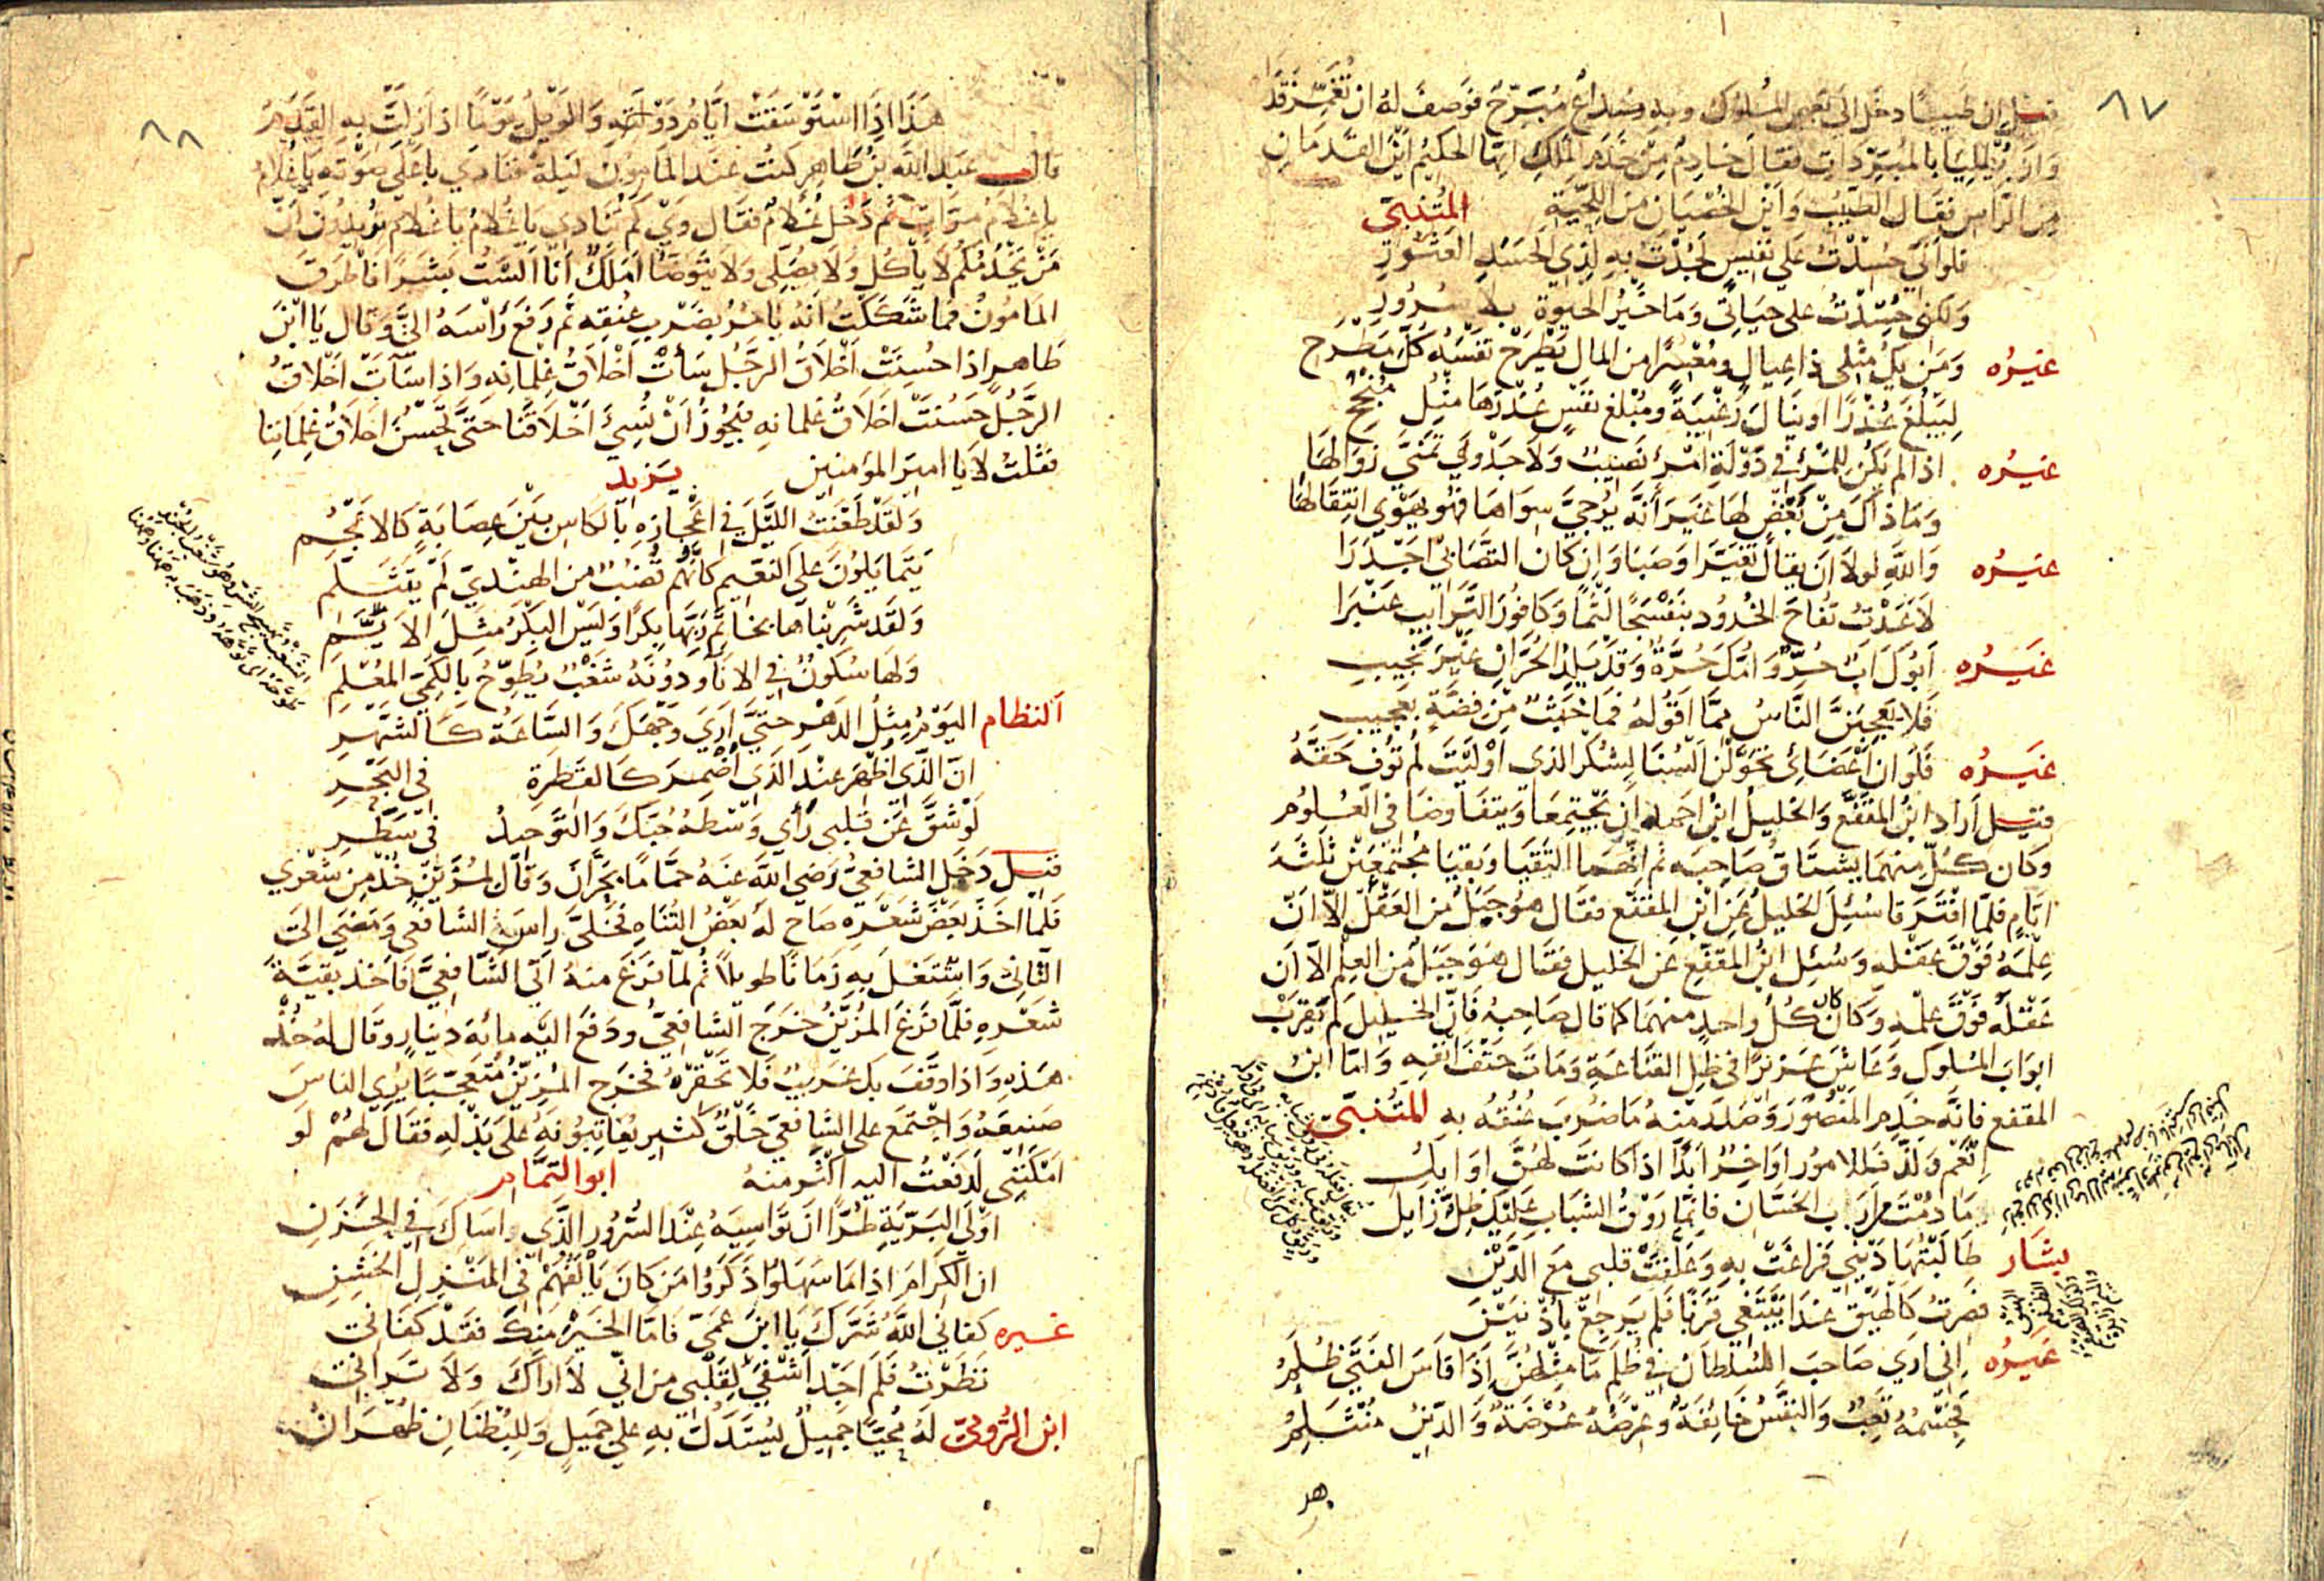 ٨٧
قيل ان طبيبًا دخل الى بعض الملوك وبه صداع مبرّح فوصف له ان تغمّر قد
وان يليا بالمبردات فقال خادم من خدم الملك ايها الحكيم اين القدمان
من الراس فقال الطبيب واين الخصيان من اللحية المتنبى
فلو اني حُسدت على نفيس لجدت به لذي الحسد العثور
ولكنى حسدت على حياتى وما خير الحيوة بلا سرور
غيره ومن يك مثلى ذا عيال ومقترا من المال يطرح نفسه كل مطرح
ليبلغ عذرا او ينال رغيبة ومبلغ نفس عذرها مثل منجح
غيره اذا لم يكن للمرئ في دولة امرئ نصيب ولا جد ولي تمنى زوالها
وما ذاك من بغض لها غير انه يرجى سواها فهو يهوي انتقالها
غيره والله لولا ان يقال تغيرا وصبا وان كان التصابي اجدرا
لاعدت تفاح الخدود بنفسجا لثما وكافور الترايب عنبرا
غيره ابوك اب حر وامك حرة وقد يلد الحران غير نجيب
فلا يعجبن الناس مما اقوله فما خبث من فضة بعجيب
غيره فلو ان اعضائى تحولن السنا لشكر الذي اوليت لم توف حقه
قيل اراد ابن المقفع والخليل ابن احمد ان يجتمعا ويتفاوضا في العلوم
وكان كل منهما يشتاق صاحبه ثم انهما التقيا وبقيا مجتمعين ثلثة
ايام فلما افترقا سئل الخليل عن ابن المقفع فقال هو جبل من العقل الا ان
علمه فوق عقله وسئل ابن المقفع عن الخليل فقال هو جبل من العلم الا ان
عقله فوق علمه وكان كان كل واحد منهما كما قال صاحبه فان الخليل لم يقرب
ابواب الملوك وعاش عزيزا في ظل القناعة ومات حتف انفه واما ابن
المقفع فانه خدم المنصور وصلد منه ما ضرب عنقه به المتنبى
انعم ولذ فللامور اواخر ابدًا اذا كانت لهن اوايل
ما دمت من ارب الحسان فانما روق الشباب عليك ظل زايل
بشار طالبتها ديني فراغت به وعلقت قلبي مع الدين
فصرت كالهيق غدا يبتغي قرنا فلم يرجع باذنين
غيره انى ارى صاحب السلطان في ظلم ما مثلهن اذا قاس الفتى ظلم
فجسمه تعب والنفس خائفة وعرضه عرضة والدين منثلم
هد
٨٨
هذا اذا استوسقت ايام دولته والويل يومًا اذا زلت به القدم
قال عبد الله بن طاهر كنت عند المامون ليلة فنادي باعلى صوته يا غلام
يا غلام مرات ثم دخل غلام فقال وي كم تنادي يا غلام يا غلام تريدون ان
من يخدمكم لا ياكل ولا يصلى ولا يتوضا املك انا الست بشرا فاطرق
المامون فما شككت انه يامر بضرب عنقه ثم رفع راسه الى وقال يا ابن
طاهر اذا حسنت اخلاق الرجل سأت اخلاق غلمانه واذا سآت اخلاق
الرجل حسنت اخلاق غلمانه فيجوز ان نسئ اخلاقنا حتى تحسن اخلاق غلماننا
فقلت لا يا امير المؤمنين يزيد
ولقد طعنت الليل في اعجازه بالكاس بين عصابة كالانجم
يتمايلون على النعيم كانهم قضب من الهندي لم يتثلم
ولقد شربناها بخاتم ربها بكرا وليس البكر مثل الايّم
ولها سكون في الانآ ودونه شغب يطوح بالكمي المعلم
النظام اليوم مثل الدهر حتى اري وجهك والساعة كالشهر
ان الذي اظهر عند الذي اضمر كالقطرة في البحر
لو شق عن قلبي رأي وسطه حبك والتوحيد في سطر
قيل دخل الشافعي رضي الله عنه حماما بحران وقال لمزين خذ من شعري
فلما اخذ بعض شعره صاح له بعض التناه فخلى راس الشافعي ومضى الى
الثاني واشتغل به زمانا طويلا ثم لما فرغ منه اتى الشافعي فاخذ بقية
شعره فلما فرغ المزين خرج الشافعي ودفع اليه مائة دينار وقال له خذ
هذه واذا وقف بك غريب فلا تحقره فخرج المزين متعجبا يري الناس
صنيعه واجتمع على الشافعي خلق كثير يعاتبونه على بذله فقال لهم لو
امكنني لدفعت اليه اكثر منه ابو التمام
اولى البرية طرا ان تواسيه عند السرور الذي واساك في الحزن
ان الكرام اذا ما سهلوا ذكروا من كان يالفهم في المنزل الخشن
غيره كفاني الله شرك يا ابن عمي فاما الخير منك فقد كفاني
نظرت فلم اجد اشفى لقلبي من اني لا اراك ولا تراني
ابن الرومي له محيا جميل يستدل به على جميل وللبطنان ظهران